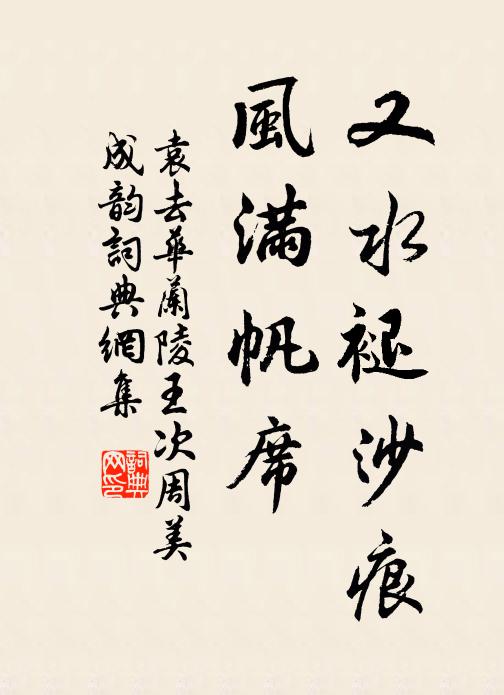 又水褪沙痕
風滿帆席
袁去華蘭陵王次周美
成韵詞典網集
詞典
网印